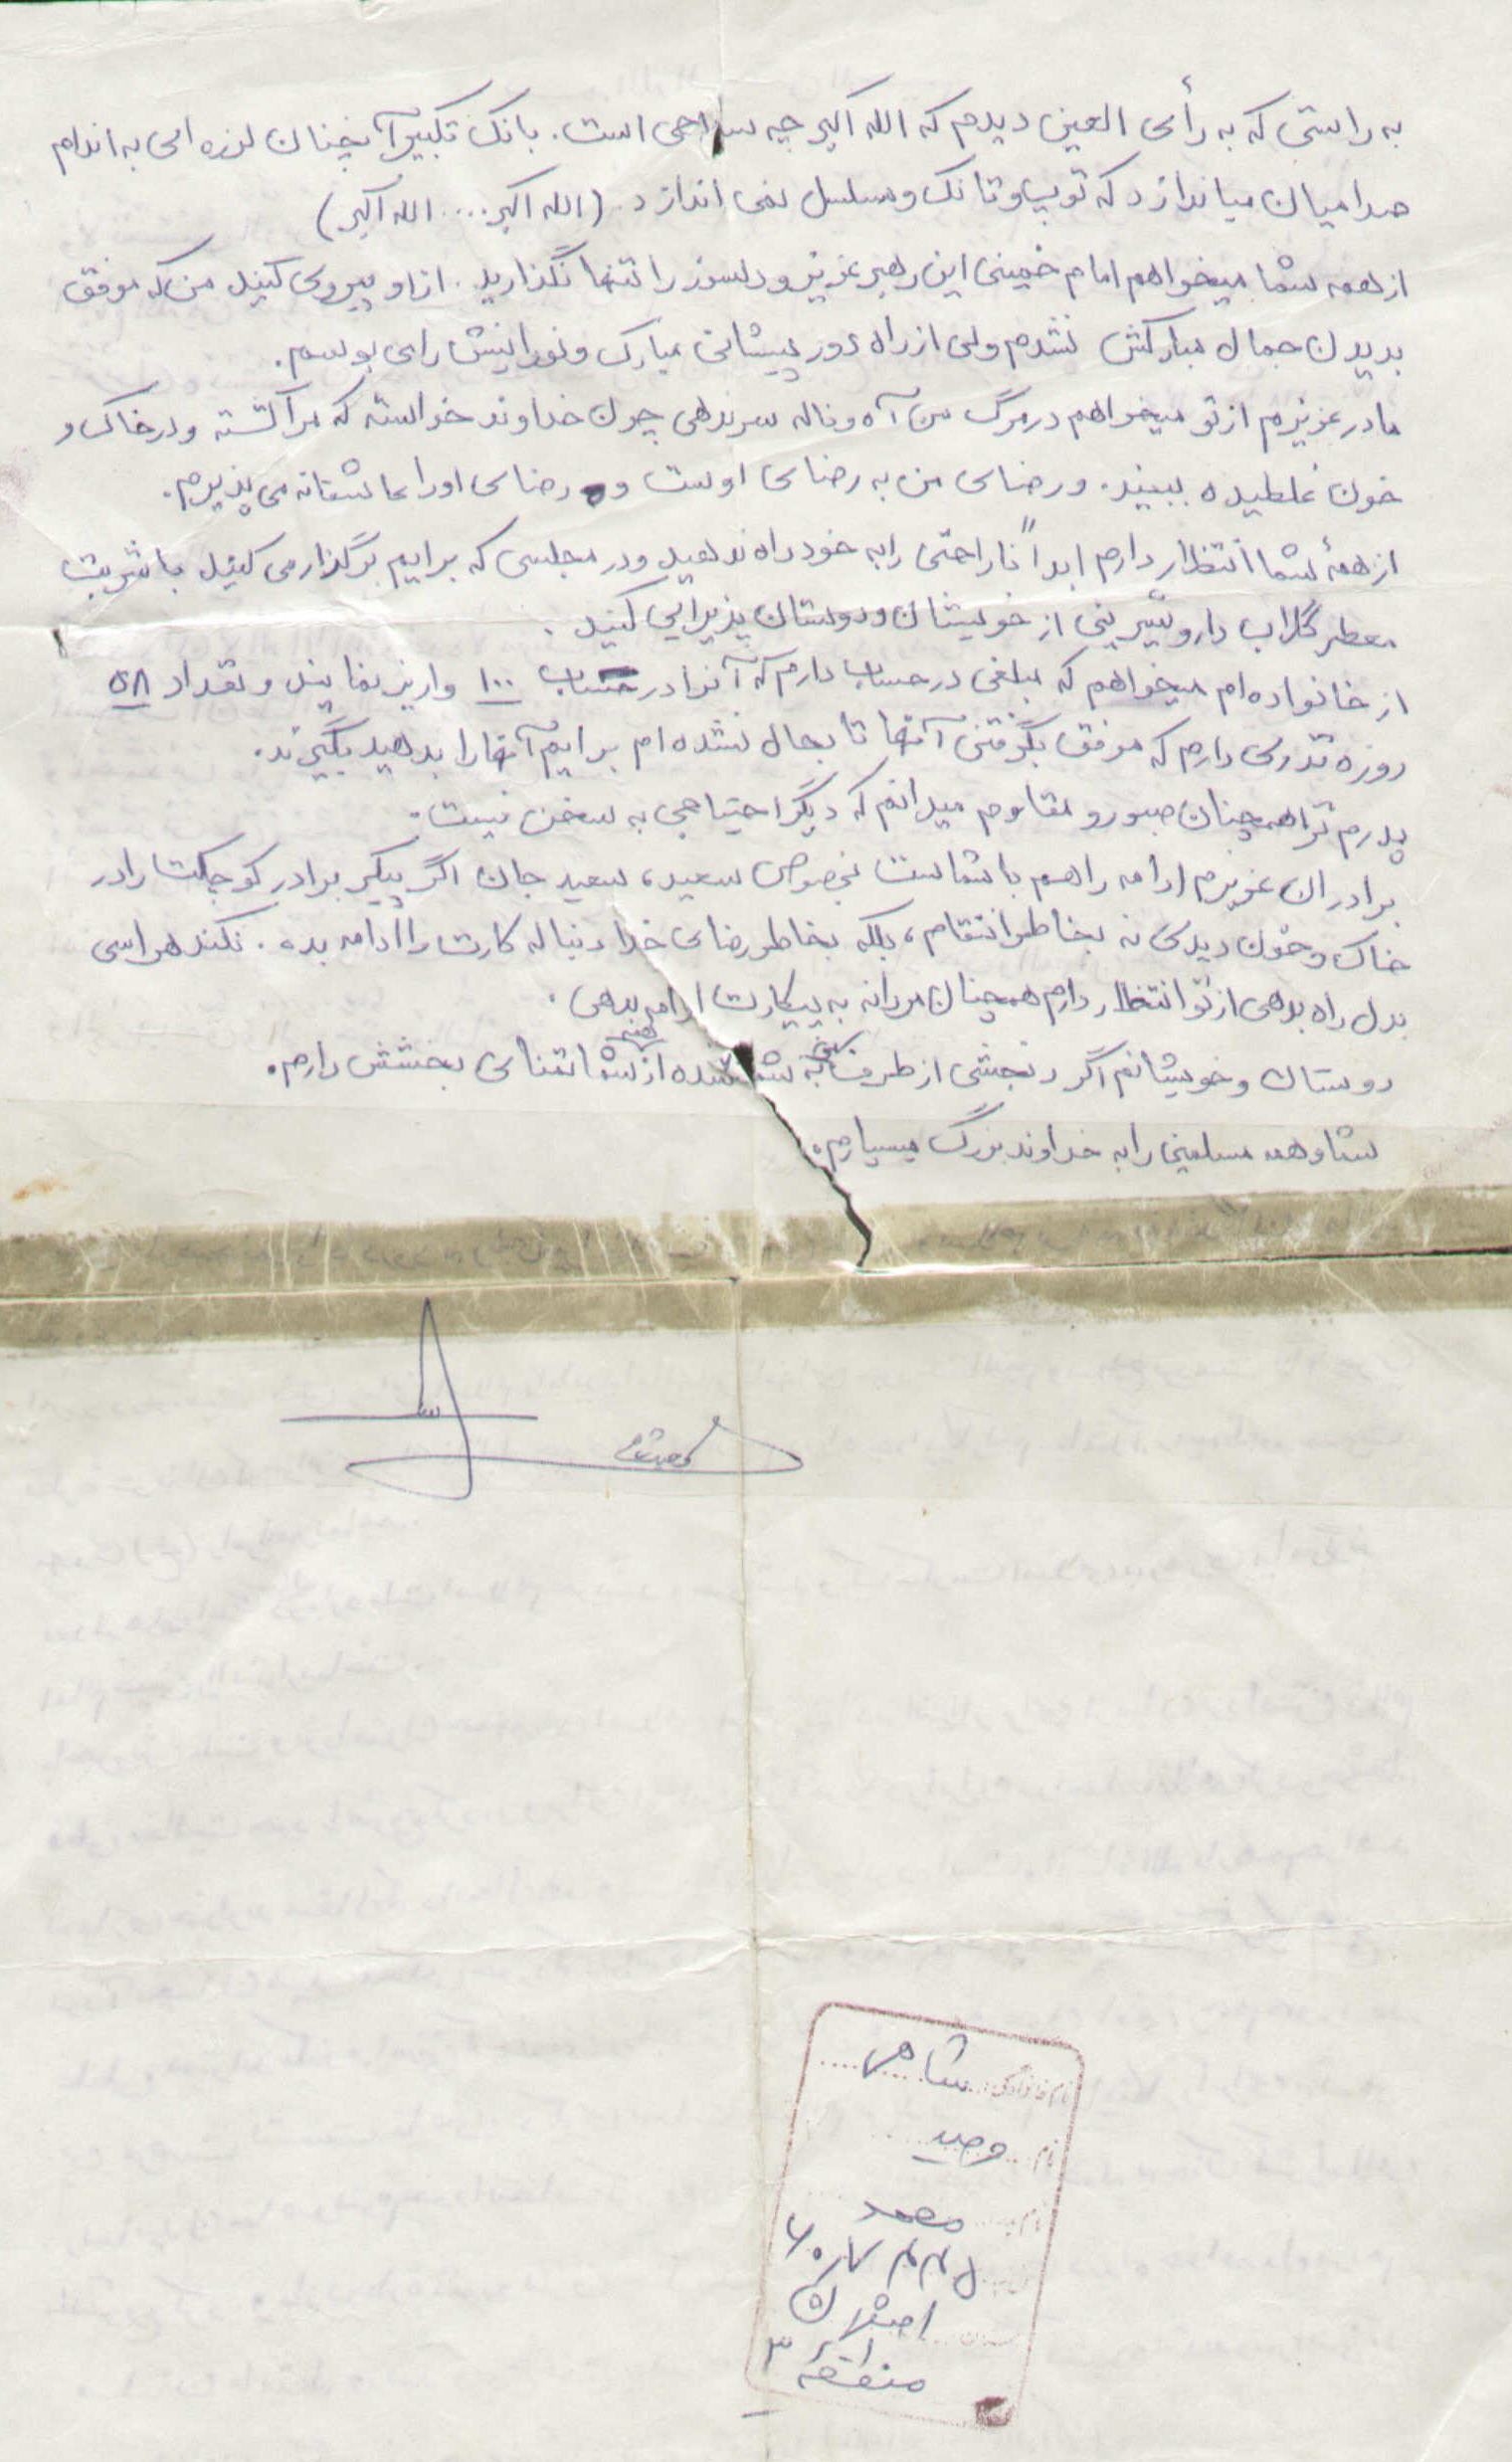 به راستی که به رأی العین دیدم که الله اکبر چه سلاحی است. بانگ تکبیر آنچنان لرزه ای به اندام
صدامیان میاندازد که توپ و تانک و مسلسل نمی اندازد. (الله اکبر... الله اکبر)
از همه شما میخواهم امام خمینی این رهبر عزیز و دلسوز را تنها نگذارید. از او پیروی کنید من که موفق
بدیدن جمال مبارکش نشدم ولی از راه دور پیشانی مبارک و نورانیش را می بوسم.
مادر عزیزم از تو میخواهم در مرگ من آه و ناله سر ندهی چون خداوند خواسته که مرا کشته و در خاک و
خون غلطیده ببیند. و رضای من به رضای اوست و رضای او را عاشقانه می پذیرم.
از همهٔ شما انتظار دارم ابداً ناراحتی را به خود راه ندهید و در مجلسی که برایم برگذار می کنید با شربت
معطر گلاب دار و شیرینی از خویشان و دوستان پذیرایی کنید.
از خانواده ام میخواهم که مبلغی در حساب دارم که آنرا در حساب ۱۰۰ واریز نمایند و تعداد ۵۸
روزه نذری دارم که موفق بگرفتن آنها تا بحال نشده ام برایم آنها را بدهید بگیرند.
پدرم ترا همچنان صبور و مقاوم میدانم که دیگر احتیاجی به سخن نیست.
برادران عزیزم ادامه راهم با شماست بخصوص سعید، سعید جان اگر پیکر برادر کوچکت را در
خاک و خون دیدی نه بخاطر انتقام، بلکه بخاطر رضای خدا دنباله کارت را ادامه بده. نکند هراسی
بدل راه بدهی از تو انتظار دارم همچنان مردانه به پیکارت ادامه بدهی.
دوستان و خویشانم اگر رنجشی از طرف من به شما شده از همه شما تقاضای بخشش دارم.
شما و همه مسلمین را به خداوند بزرگ میسپارم.
نام خانوادگی
نام وحید
محمد
اصفهان
منطقه ۳